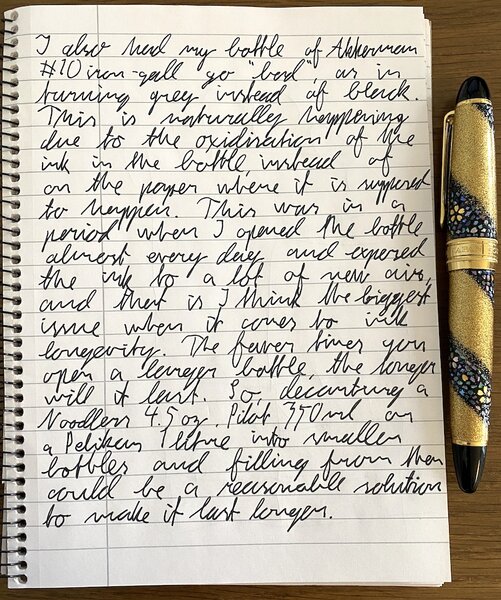 I also had my bottle of Akkerman
#10 iron-gall go "bad", as in
turning grey instead of black.
This is naturally happening
due to the oxidisation of the
ink in the bottle, instead of
on the paper where it is supposed
to happen. This was in a
period when I opened the bottle
almost every day and exposed
the ink to a lot of new airs,
and that is I think the biggest
issue when it comes to ink
longevity. The fewer times you
open a larger bottle, the longer
will it last. So, decanting a
Noodlers 4.5 oz, Pilot 350 ml or
a Pelikan 1 litre into smaller
bottles and filling from them
could be a reasonable solution
to make it last longer.